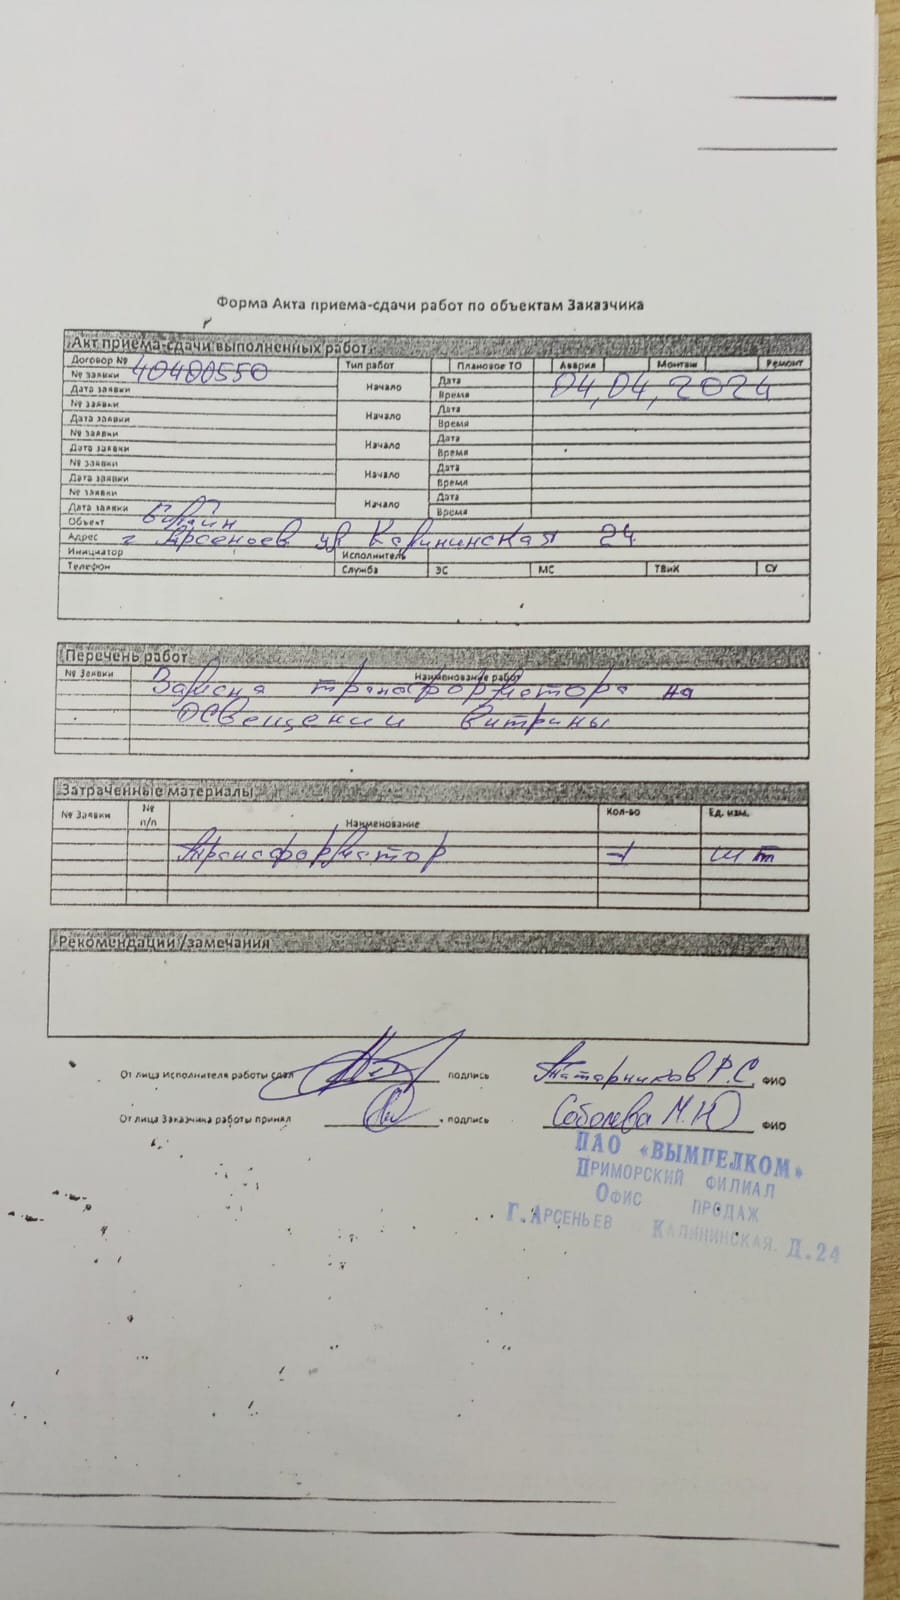 Форма Акта приема-сдачи работ по объектам Заказчика
Акт приема-сдачи выполненных работ.
Договор № Тип работ Плановое ТО Авария Монтаж Ремонт
№ заявки 40400550 Начало Дата 04,04,2024
Дата заявки Время
№ заявки Начало Дата
Дата заявки Время
№ заявки Начало Дата
Дата заявки Время
№ заявки Начало Дата
Дата заявки Время
№ заявки Начало Дата
Дата заявки Время
Объект Билайн
Адрес г Арсеньев ул Калининская 24
Инициатор Исполнитель
Телефон Служба ЭС МС ТВиК СУ
Перечень работ
№ Заявки Наименование работ
Замена трансформатора на
освещении витрины
Затраченные материалы
№ Заявки № п/п Наименование Кол-во Ед. изм.
Трансформатор 1 шт
Рекомендации /замечания
От лица Исполнителя работы сдал подпись Татарников Р.С. ФИО
От лица Заказчика работы принял подпись Соболева М.Ю ФИО
ПАО «ВЫМПЕЛКОМ»
ПРИМОРСКИЙ ФИЛИАЛ
ОФИС ПРОДАЖ
Г.АРСЕНЬЕВ КАЛИНИНСКАЯ. Д.24